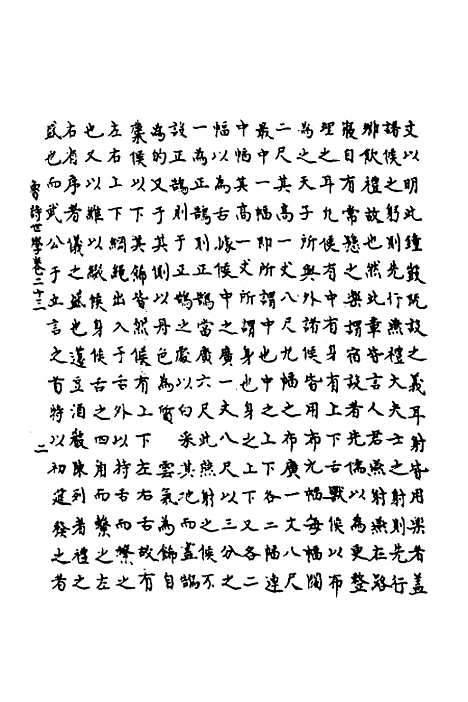 文以明此鐘鼓既設之義耳射皆用樂者盖
諸候之射則先行燕禮大夫士之射則先行
飲禮故也然此章皆言人君燕射燕在路
寢自有常懸之樂有宿設者先儒以為更整
理之耳九候有身有上下舌候以布
為之天子所與外諸候皆用布九幅每幅闊
二尺其高一丈八尺九幅之布廣一丈八尺
最中一幅即所謂中也中之上下各二幅連
中幅為高候中之身也身之上下又各二
幅以為舌據中之廣一丈八尺上下三分之二
一為正鵠則正鵠當廣六尺此燕射之候不
設正鵠則于正鵠之處以白采其地而盖鵠
為的又于其側以丹色為質雲氣為飾自
麋候以下其飾皆然候有上下左右舌故有
左右上下綱出入于舌外以持舌而繫之
也又以維以候舌之四角而繫之左
右者序儀之盛也酒之嚴陳列者禮之
盛也而武公于立言之首特以初筵發之者
魯詩世學卷二十三 二